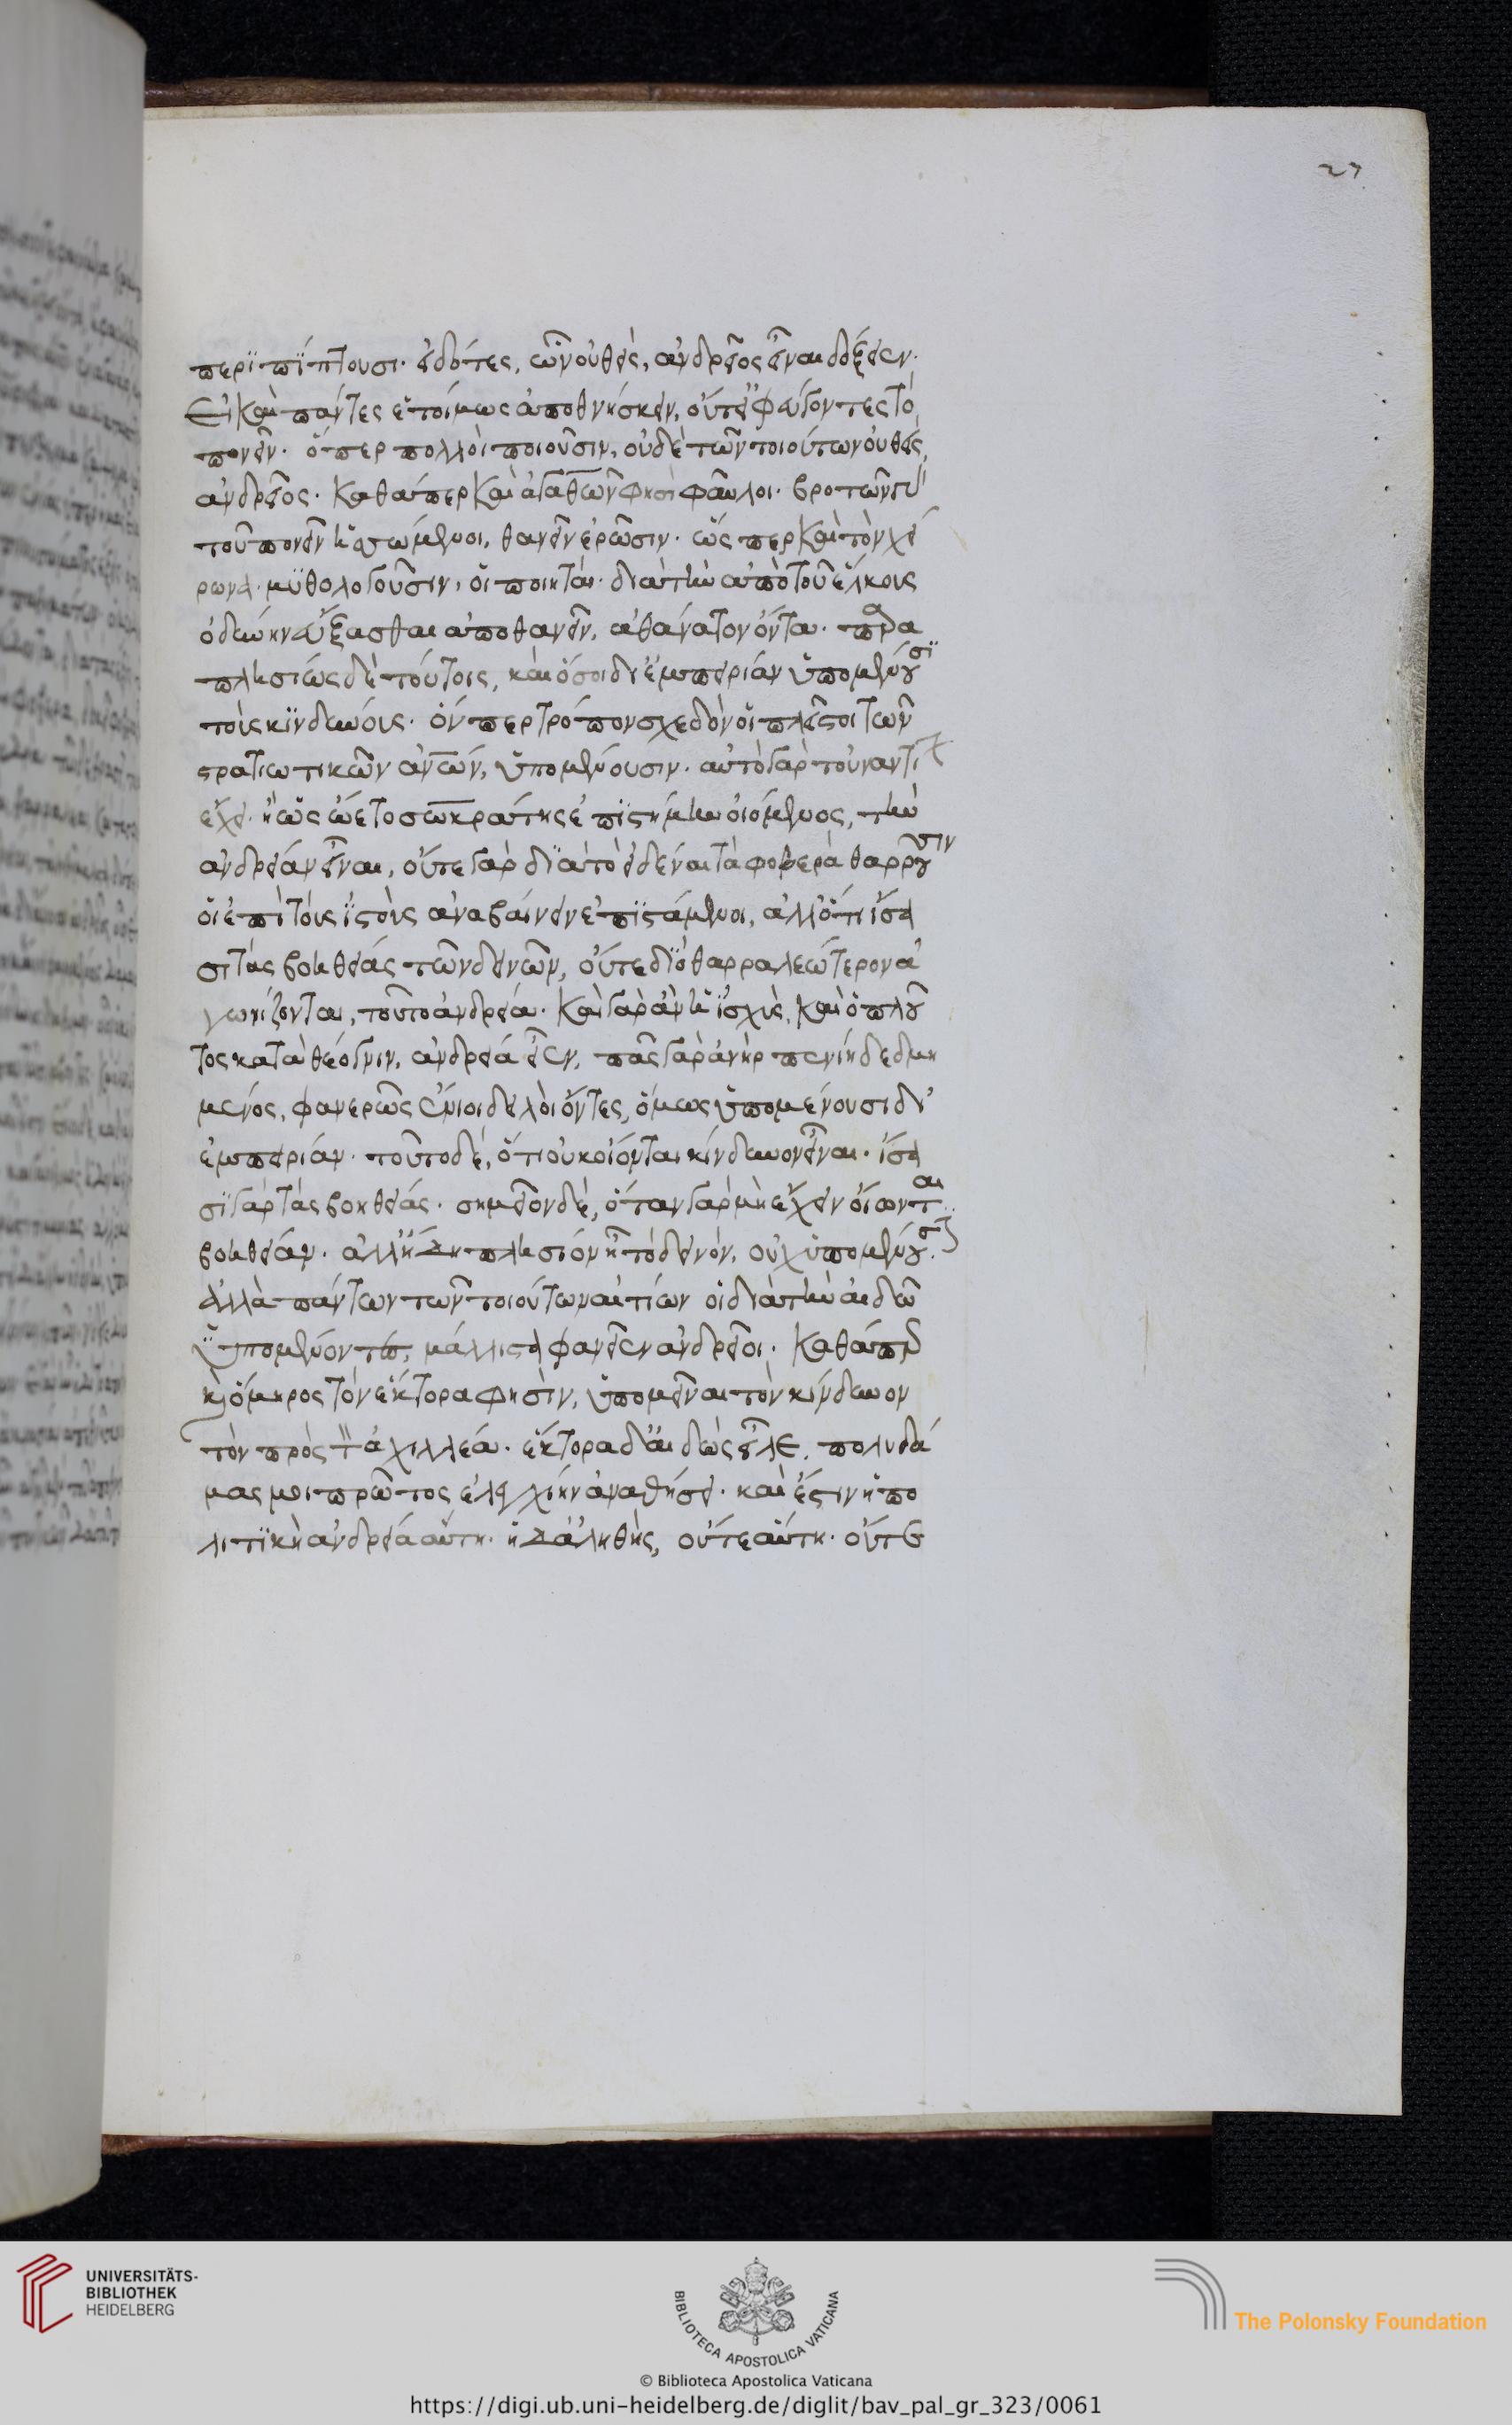 27
περιπίπτουσι· εἰδότες, ὧν οὐθεὶς, ἀνδρεῖος εἶναι δόξειεν·
Εἰ καὶ πάντες ἑτοίμως ἀποθνήσκειεν, οὔτε φεύγοντες τὸ
πονεῖν· ὅπερ πολλοὶ ποιοῦσιν, οὐδὲ τῶν τοιούτων οὐθεὶς,
ἀνδρεῖος· καθάπερ καὶ ἀγάθων φησὶ φαῦλοι· βροτῶν γὰρ
τοῦ πονεῖν ἡσσώμενοι, θανεῖν ἐρῶσιν· ὥσπερ καὶ τὸν χεί
ρωνα· μυθολογοῦσιν, οἱ ποιηταὶ· διὰ τὴν ἀπὸ τοῦ ἕλκους
ὀδύνην εὔξασθαι ἀποθανεῖν, ἀθάνατον ὄντα· παρα
πλησίως δὲ τούτοις, καὶ ὅσοι δι' ἐμπειρίαν ὑπομένουσι
τοὺς κινδύνους· ὅνπερ τρόπον σχεδὸν οἱ πλεῖστοι τῶν
στρατιωτικῶν ἀνων, ὑπομένουσιν· αὐτὸ γὰρ τοὐναντίον
ἔχει· ἢ ὡς ᾤετο σωκράτης ἐπιστήμην οἰόμενος, τὴν
ἀνδρείαν εἶναι, οὔτε γὰρ διὰ τὸ εἰδέναι τὰ φοβερὰ θαρροῦσιν
οἱ ἐπὶ τοὺς ἱστοὺς ἀναβαίνειν ἐπιστάμενοι, ἀλλ' ὅτι ἴσα
σι τὰς βοηθείας τῶν δεινῶν, οὔτε διὸ θαρραλεώτερον ἀ
γωνίζονται, τοῦτο ἀνδρεία· καὶ γὰρ ἂν ἡ ἰσχὺς, καὶ ὁ πλοῦ
τος κατὰ θέογνιν, ἀνδρεία εἶεν, πᾶς γὰρ ἀνὴρ πενίῃ δεδμη
μένος, φανερῶς ἔνιοι δειλοὶ ὄντες, ὅμως ὑπομένουσι δι'
ἐμπειρίαν· τοῦτο δὲ, ὅτι οὐκ οἴονται κίνδυνον εἶναι· ἴσα
σι γὰρ τὰς βοηθείας· σημεῖον δὲ, ὅταν γὰρ μὴ ἔχειν οἴωνται
βοήθειαν· ἀλλ' ἤδη πλησίον ᾖ τὸ δεινὸν, οὐχ ὑπομένουσι·
ἀλλὰ πάντων τῶν τοιούτων αἰτίων οἱ διὰ τὴν αἰδῶ
ὑπομένοντες, μάλιστα φανεῖεν ἀνδρεῖοι· καθάπερ
καὶ ὅμηρος τὸν ἕκτορα φησὶν, ὑπομεῖναι τὸν κίνδυνον
τὸν πρὸς τὸν ἀχιλλέα· ἕκτορα δ' αἰδὼς εἷλε, πολυδά
μας μοι πρῶτος ἐλεγχείην ἀναθήσει· καὶ ἔστιν ἡ πο
λιτικὴ ἀνδρεία αὕτη· ἡ δ' ἀληθὴς, οὔτε αὕτη· οὔτε
UNIVERSITÄTS-
BIBLIOTHEK
HEIDELBERG
BIBLIOTECA APOSTOLICA VATICANA
The Polonsky Foundation
© Biblioteca Apostolica Vaticana
https://digi.ub.uni-heidelberg.de/diglit/bav_pal_gr_323/0061